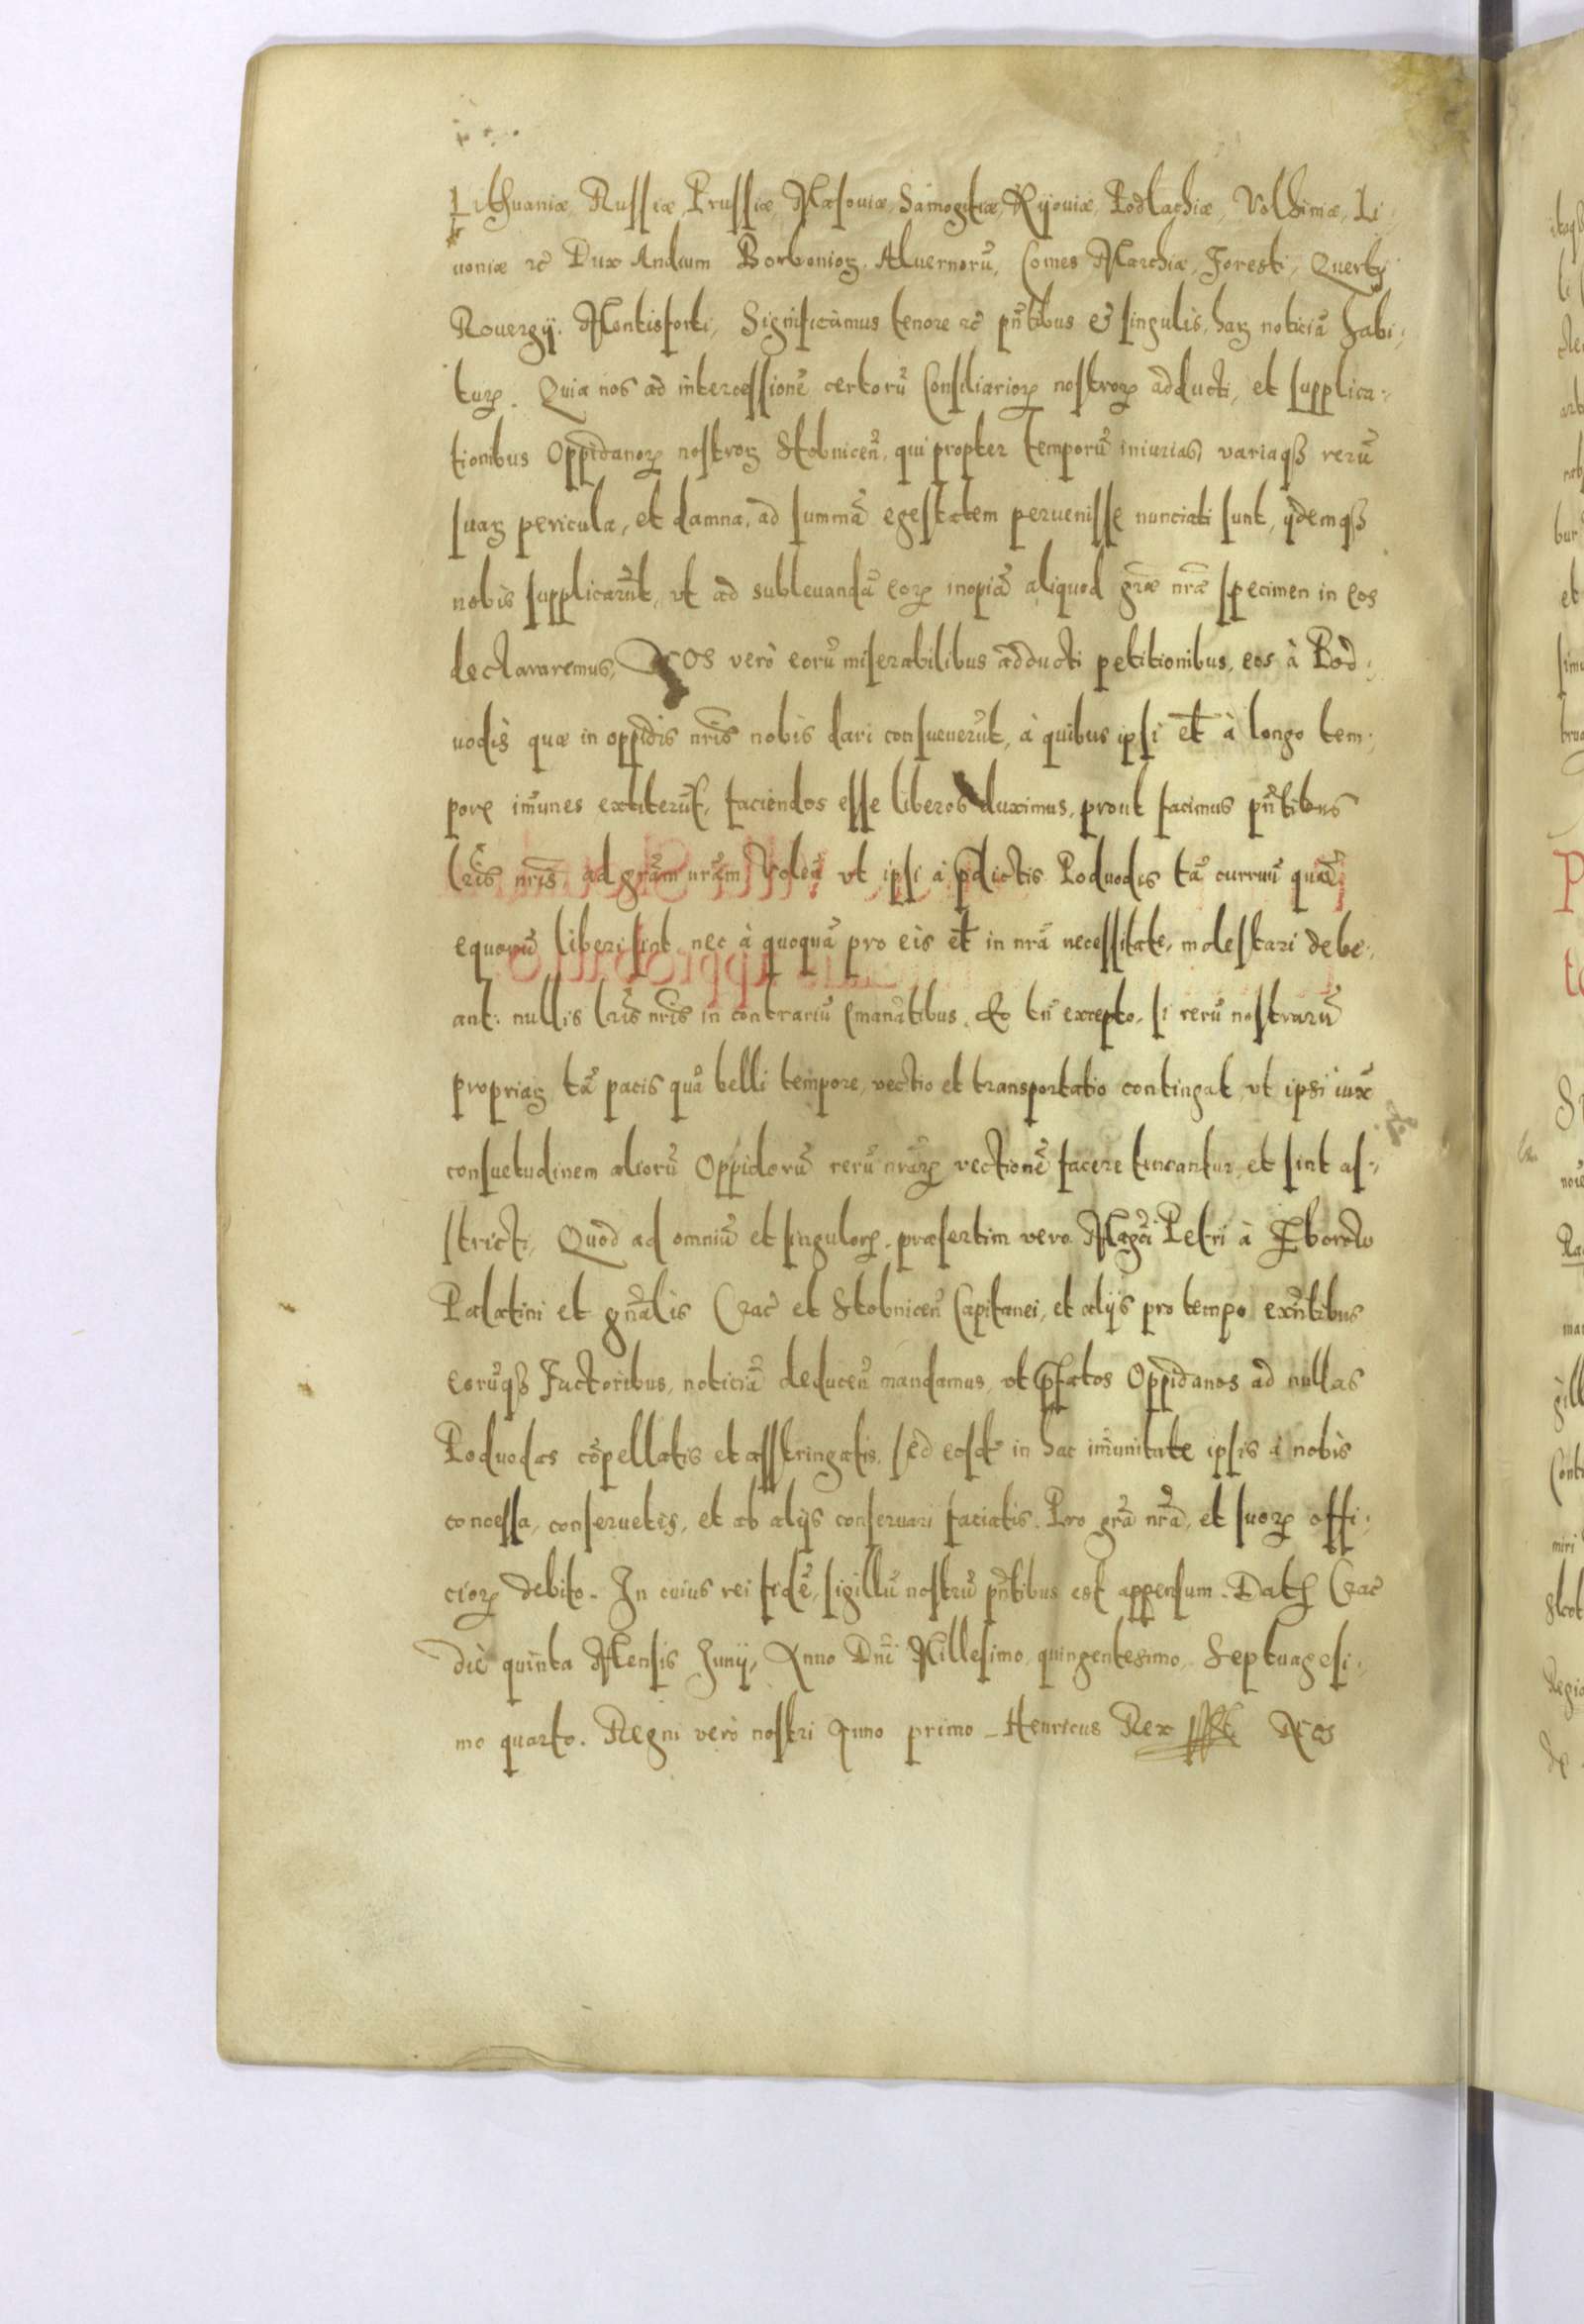 Lithuaniæ, Russiæ, Prussiæ, Masouiæ, Samogitiæ, Kijouiæ, Podlachiæ, Volhiniæ, Li-
uoniæ ꝛc̃ Dux Andium Borboniorꝫ, Aluernorũ, Comes Marchiæ, Foresti, Quertij
Rouergij, Montisforti, Significamus tenore ꝛc̃ pñtibus & singulis, harꝫ noticiã habi-
turꝝ. Quia nos ad intercessionẽ certorũ Consiliarioꝝ nostroꝝ adducti, et supplica-
tionibus Oppidanoꝝ nostrorꝫ Stobniceñ, qui propter temporũ iniurias, variaqꝫ rerũ
suarꝫ pericula, et damna, ad summã egestatem peruenisse nunciati sunt, ijdemqꝫ
nobis supplicarũt, vt ad subleuandã eoꝝ inopiã aliquod grãe nrãe specimen in eos
declararemus, Nos verò eorũ miserabilibus adducti petitionibus, eos à Pod-
uodis quæ in oppidis nrĩs nobis dari consueuerũt, à quibus ipsi et̃ à longo tem-
pore im̃unes extiterũt, faciendos esse liberos duximus, prout facimus pñtibus
lrĩs nrĩs, ad grãm nrãm Volẽs vt ipsi à p̃dictis Poduodis tã curruũ quàm
equorũ liberi sint nec à quoquã pro eis et̃ in nrã necessitate, molestari debe-
ant: nullis lrĩs nrĩs in contrariũ emanãtibus. Eo tñ excepto, si rerũ nostrarũ
propriarꝫ tã pacis quã belli tempore, vectio et transportatio contingat, vt ipsi iux̃
consuetudinem aliorũ Oppidorũ rerũ nrãꝝ vectionẽ facere teneantur, et sint as-
stricti, Quod ad omniũ et singuloꝝ, præsertim vero Magci Petri à Zborow
Palatini et gñalis Crac̃ et Stobniceñ Capitanei, et alijs pro tempo exñtibus
eorũqꝫ Factoribus, noticiã deduceñ mandamus, vt p̃fatos Oppidanos ad nullas
Poduodas cõpellatis et asstringatis, sed eosd̃ in hac im̃unitate ipsis à nobis
concessa, conseruetis, et ab alijs conseruari faciatis. Pro grã nrã, et suoꝝ offi-
cioꝝ debito. In cuius rei fidẽ, sigillũ nostrũ pñtibus est appensum. Datꝫ Crac̃
die quinta Mensis Junij, Anno Dñi Millesimo, quingentesimo, Septuagesi-
mo quarto. Regni verò nostri Anno primo – Henricus Rex Nos